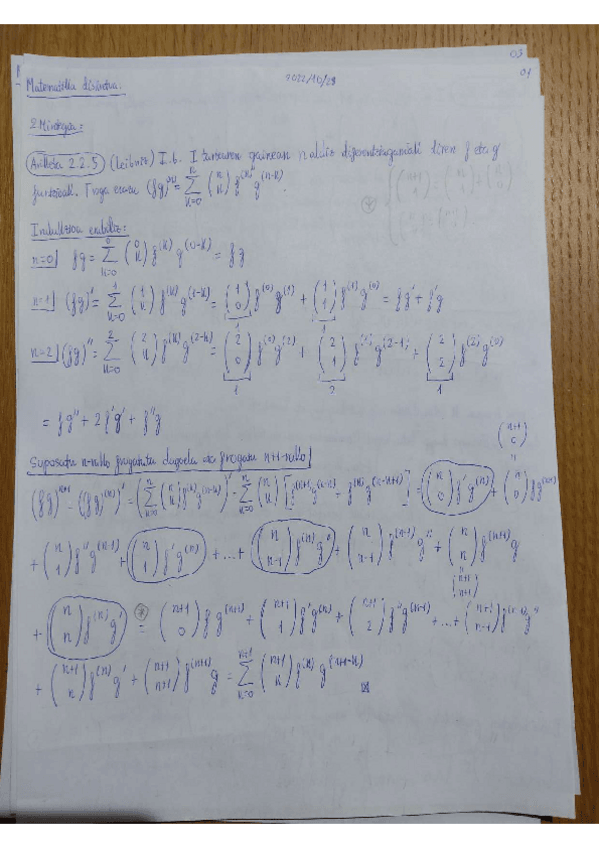 03
01
2022/10/28
Matematika diskretua.
2. Mintegia:
Ariketa 2.2.5 (Leibniz) I.b. I tartearen gainean n aldiz diferentziagarriak diren f eta g
funtzioak. Froga ezazu (fg)^(n) = ∑_{k=0}^{n} (n k) f^(k) g^(n-k).
Indukzioa erabiliz:
n=0 fg = ∑_{k=0}^{0} (0 k) f^(k) g^(0-k) = fg
n=1 (fg)' = ∑_{k=0}^{1} (1 k) f^(k) g^(1-k) = (1 0) f^(0) g^(1) + (1 1) f^(1) g^(0) = fg' + f'g
1 1
n=2 (fg)'' = ∑_{k=0}^{2} (2 k) f^(k) g^(2-k) = (2 0) f^(0) g^(2) + (2 1) f' g^(2-1) + (2 2) f^(2) g^(0)
1 2 1
= fg'' + 2f'g' + f''g
Suposatu n-rako frogatuta dagoela eta frogatu n+1-rako
(fg)^(n+1) = ((fg)^(n))' = (∑_{k=0}^{n} (n k) f^(k) g^(n-k))' = ∑_{k=0}^{n} (n k) [f^(k+1) g^(n-k) + f^(k) g^(n-k+1)] = (n 0) f' g^(n) + (n 0) f g^(n+1)
+ (n 1) f'' g^(n-1) + (n 1) f' g^(n) + ... + (n n-1) f^(n) g' + (n n-1) f^(n-1) g'' + (n n) f^(n+1) g
(n+1 n+1)
+ (n n) f^(n) g' = (n+1 0) f g^(n+1) + (n+1 1) f' g^(n) + (n+1 2) f'' g^(n-1) + ... + (n+1 n-1) f^(n-1) g''
+ (n+1 n) f^(n) g' + (n+1 n+1) f^(n+1) g = ∑_{k=0}^{n+1} (n+1 k) f^(k) g^(n+1-k)